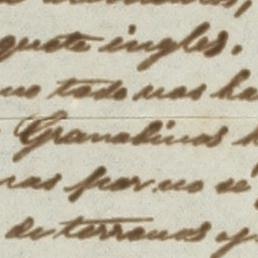 quete ingles.
no todo nos ha
Granadinas
nas por no se
de terrenos y